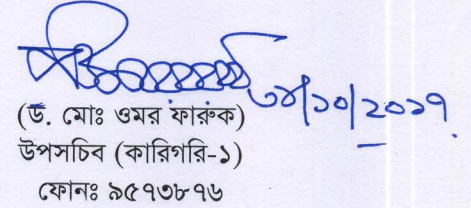 ০৪/১০/২০১৭
(ড. মোঃ ওমর ফারুক)
উপসচিব (কারিগরি-১)
ফোনঃ ৯৫৭৩৮৭৬